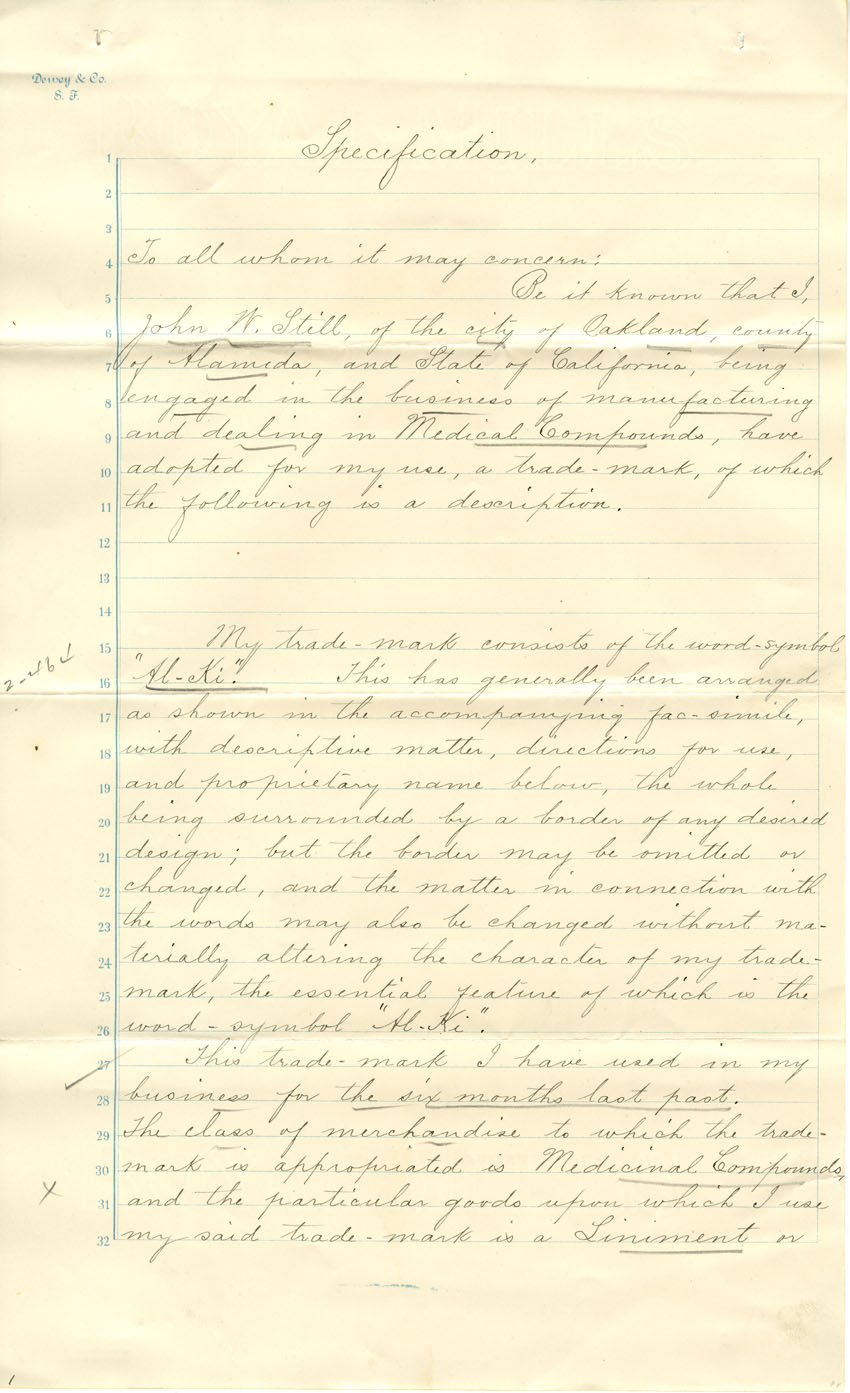 Dewey & Co.
S. F.
Specification.
1
2
3
4 To all whom it may concern:
5 Be it known that I,
6 John W. Still, of the city of Oakland, county
7 of Alameda, and State of California, being
8 engaged in the business of manufacturing
9 and dealing in Medical Compounds, have
10 adopted for my use, a trade-mark, of which
11 the following is a description.
12
13
14
15 My trade-mark consists of the word-symbol
2-464
16 "Al-Ki". This has generally been arranged
17 as shown in the accompanying fac-simile,
18 with descriptive matter, directions for use,
19 and proprietary name below, the whole
20 being surrounded by a border of any desired
21 design; but the border may be omitted or
22 changed, and the matter in connection with
23 the words may also be changed without ma-
24 terially altering the character of my trade-
25 mark, the essential feature of which is the
26 word-symbol "Al-Ki".
27 This trade-mark I have used in my
28 business for the six months last past.
29 The class of merchandise to which the trade-
30 mark is appropriated is Medicinal Compounds,
X
31 and the particular goods upon which I use
32 my said trade-mark is a Liniment or
1